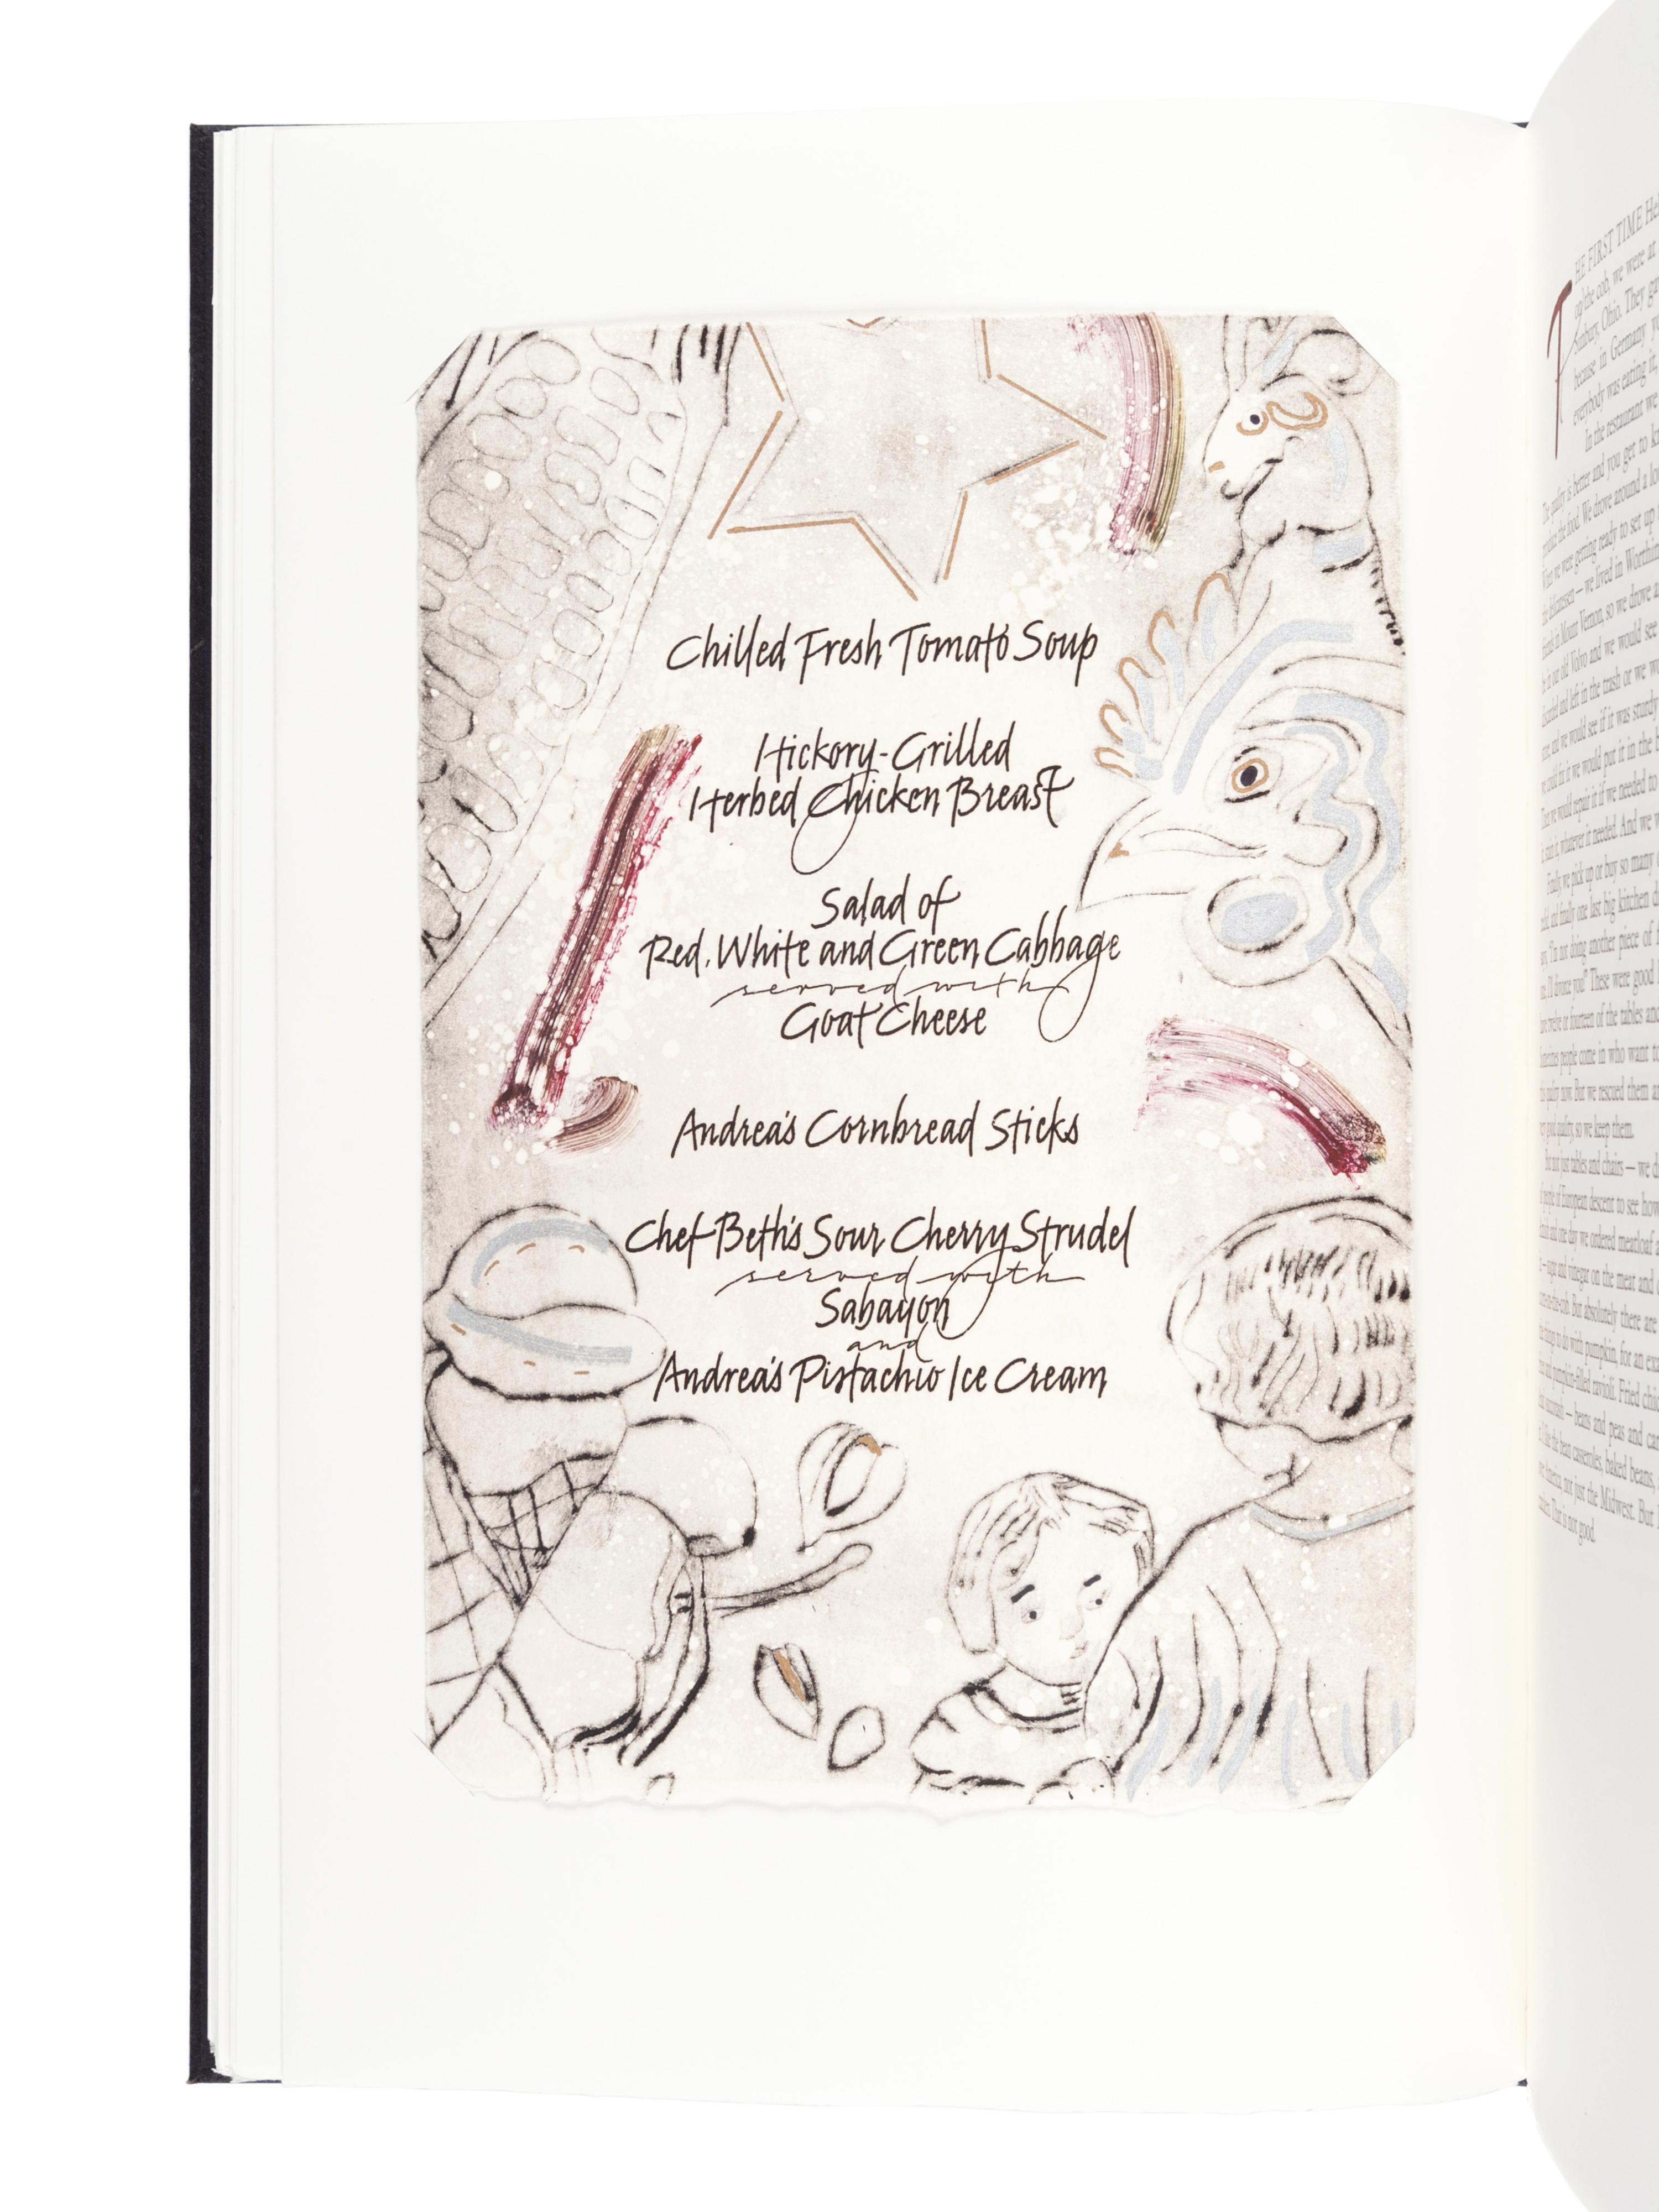 Chilled Fresh Tomato Soup
Hickory-Grilled
Herbed Chicken Breast
Salad of
Red, White and Green Cabbage
served with
Goat Cheese
Andrea's Cornbread Sticks
Chef Beth's Sour Cherry Strudel
served with
Sabayon
and
Andrea's Pistachio Ice Cream
THE FIRST TIME
the cob, we were at
Sunbury, Ohio. They
because in Germany
everybody was eating it,
In the restaurant we
quality is better and you get to
the food. We drove around a
we were getting ready to set up
delicatessen — we lived in
in Mount Vernon, so we drove
old Volvo and we would see
and left in the trash or we
and we would see if it was sturdy
fix it we would put it in the
we would repair it if we needed to
whatever it needed. And we
we pick up or buy so many
and finally one last big kitchen
"I'm not doing another piece of
I'll divorce you!" These were good
twelve or fourteen of the tables and
people come in who want to
quality now. But we rescued them
good quality, so we keep them.
not just tables and chairs — we
people of European descent to see how
and one day we ordered meatloaf
— sugar and vinegar on the meat and
But absolutely there are
to do with pumpkin, for an
pumpkin-filled ravioli. Fried
— beans and peas and
the best casseroles, baked beans,
not just the Midwest. But
That is not good.